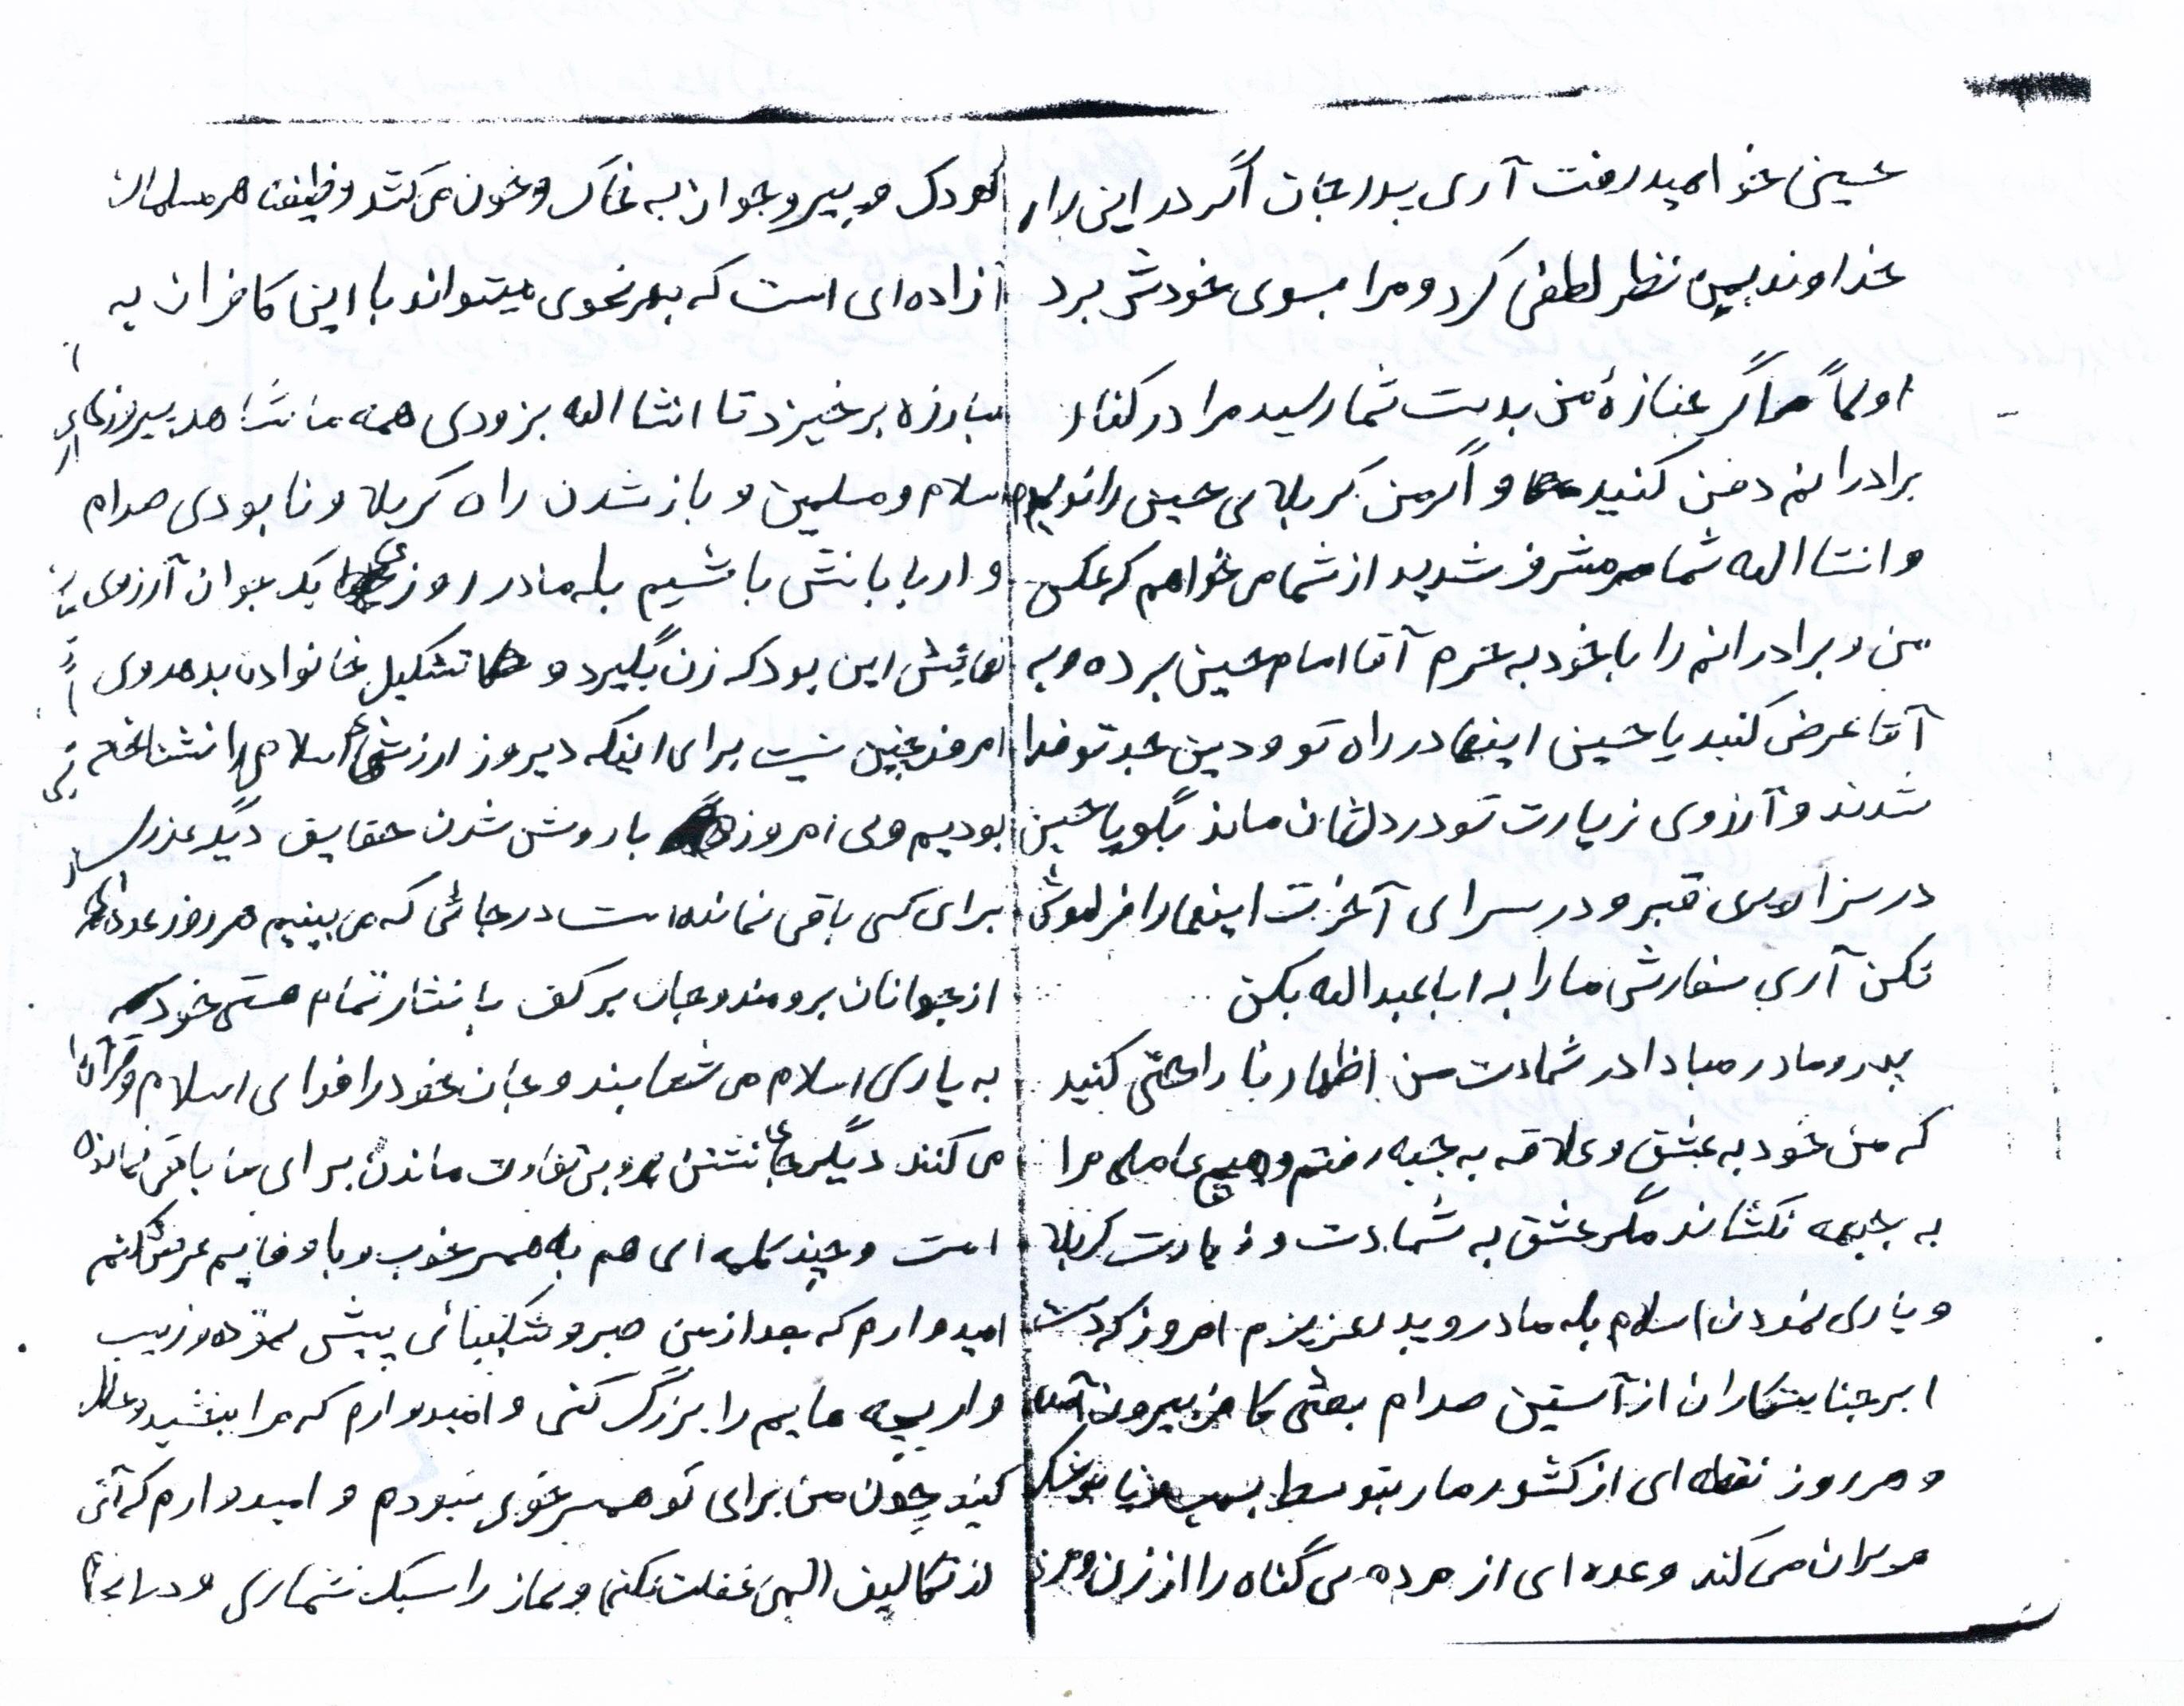 حسینی خواهید رفت آری پدر جان اگر در این راه
خداوند بمن نظر لطفی کرد و مرا بسوی خودش برد
اولاً اگر جنازهٔ من بدست شما رسید مرا در کنار
برادرانم دفن کنید و اگر من کربلای حسین را ندیدم
و انشا اله شما مشرف شدید از شما می خواهم که عکس
من و برادرانم را با خود به حرم آقا امام حسین برده و به
آقا عرض کنید یا حسین اینها در راه تو و دین جد تو فدا
شدند و آرزوی زیارت تو در دلشان ماند بگو یا حسین
در سرازیری قبر و در سرای آخرت اینها را فراموش
نکن آری سفارش ما را به ابا عبداله بکن
پدر و مادر مبادا در شهادت من اظهار ناراحتی کنید
که من خود به عشق و علاقه به جبهه رفتم و هیچ عاملی مرا
به جبهه نکشاند مگر عشق به شهادت و زیارت کربلا
و یاری نمودن اسلام بله مادر و پدر عزیزم امروز که دست
ابر جنایتکاران از آستین صدام بعثی کافر بیرون آمده
و هر روز نقطه ای از کشور ما را بتوسط بمب و یا موشک
ویران می کند و عده ای از مردم بی گناه را از زن و مرد
کودک و پیر و جوان به خاک و خون می کشد وظیفه هر مسلمان
آزاده ای است که بهر نحوی میتواند با این کافران به
مبارزه برخیزد تا انشا اله بزودی همه ما شاهد پیروزی
اسلام و مسلمین و باز شدن راه کربلا و نابودی صدام
و اربابانش باشیم بله مادر روزی یک جوان آرزوی
نهائیش این بود که زن بگیرد و تشکیل خانواده بدهد ولی
امروز چنین نیست برای اینکه دیروز ارزشهای اسلامی را نشناخته
بودیم ولی امروز با روشن شدن حقایق دیگر عذر
برای کسی باقی نمانده است در جائی که می بینیم هر روز عده ای
از جوانان برومند و جان بر کف با نثار تمام هستی خود
به یاری اسلام می شتابند و جان خود را فدای اسلام و قرآن
می کنند دیگر جای نشستن و بی تفاوت ماندن برای ما باقی نمانده
است و چند کلمه ای هم به همسر خوب و با وفایم عرض کنم
امیدوارم که بعد از من صبر و شکیبائی پیش نموده و زینب
وار بچه هایم را بزرگ کنی و امیدوارم که مرا ببخشید و حلال
کنید چون من برای تو همسر خوبی نبودم و امیدوارم که آنی
از تکالیف الهی غفلت نکنی و نماز را سبک نشماری و